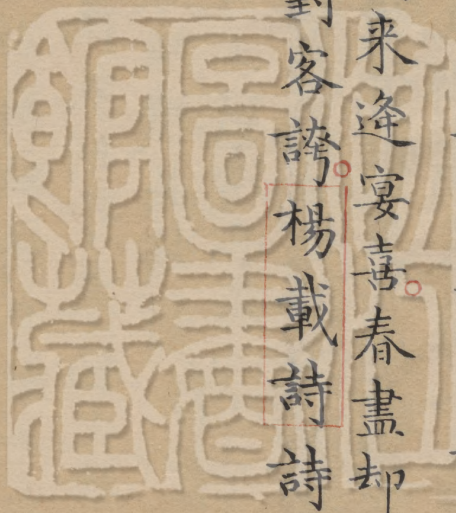 来逢宴喜春盡却
對客誇楊載詩詩